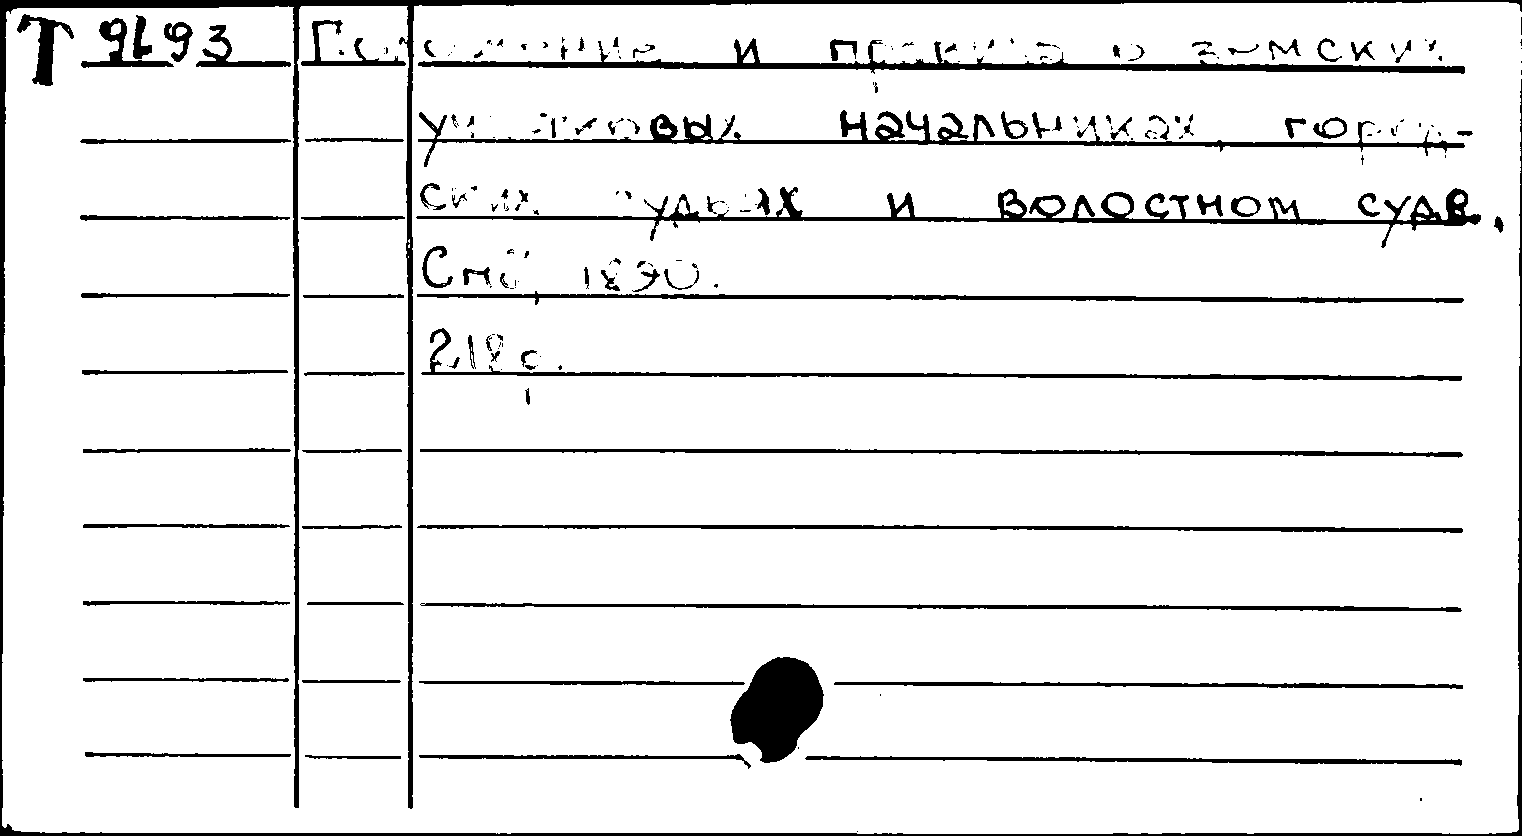 Т 9693 Положение и правила о земских
участковых начальниках, город-
ских судьях и волостном суде.
Спб, 1890.
218 с.